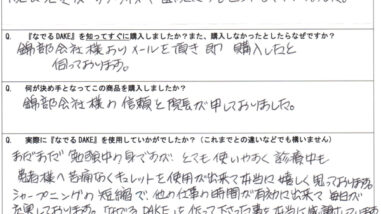 Q. 『なでるDAKE』を知ってすぐに購入しましたか？また、購入しなかったとしたらなぜですか？
錦部会社様よりメールを頂き即 購入したと
伺っております。
Q. 何が決め手となってこの商品を購入しましたか？
錦部会社様の信頼と院長が申しておりました。
Q. 実際に『なでるDAKE』を使用していかがでしたか？（これまでとの違いなどでも構いません）
まだまだ 勉強中の身ですが、とても使いやすく 診療中も
患者様へ苦痛なくキュレットを使用が出来て本当に嬉しく思っております。
シャープニングの短縮で、他の仕事の時間が有効に出来て 毎日が
充実しております。「なでるDAKE」を作って下さった事を本当に感謝しております